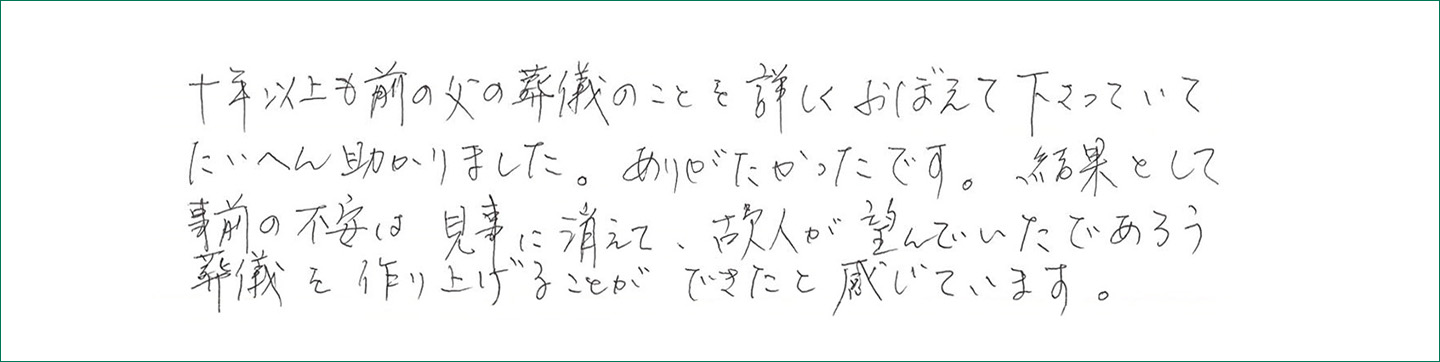 十年以上も前の父の葬儀のことを詳しくおぼえて下さっていて
たいへん助かりました。ありがたかったです。結果として
事前の不安は見事に消えて、故人が望んでいたであろう
葬儀を作り上げることができたと感じています。